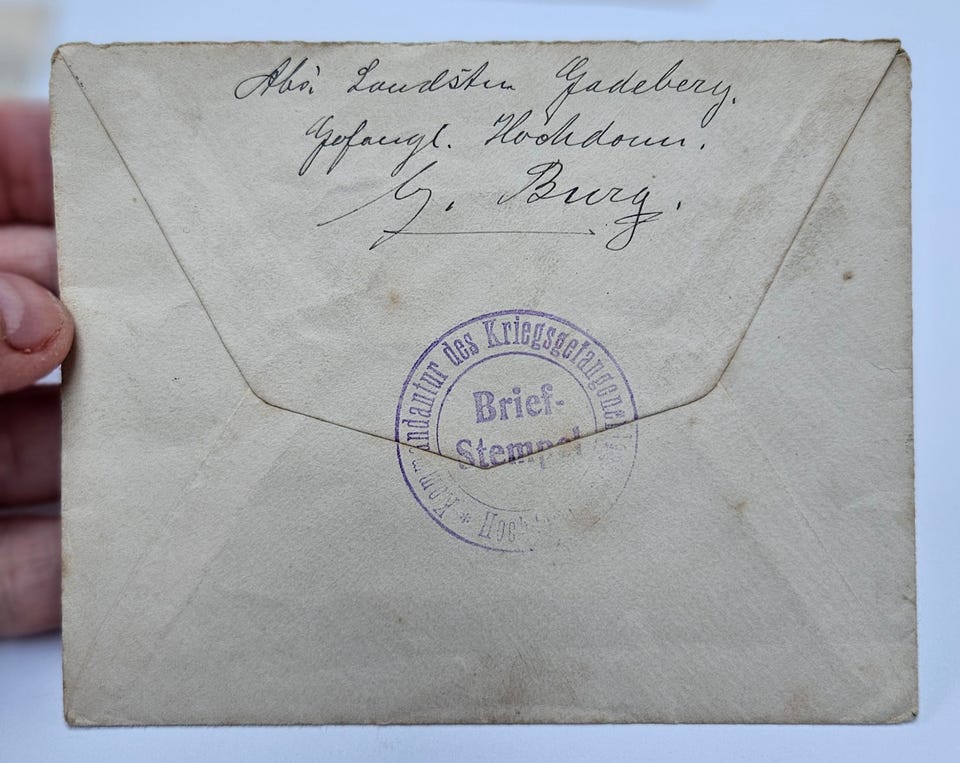 Abs. Landstm Gadeberg.
Gefangl. Hochdonn.
b/. Burg.
Kommandantur des Kriegsgefangenen
Brief-
Stempel